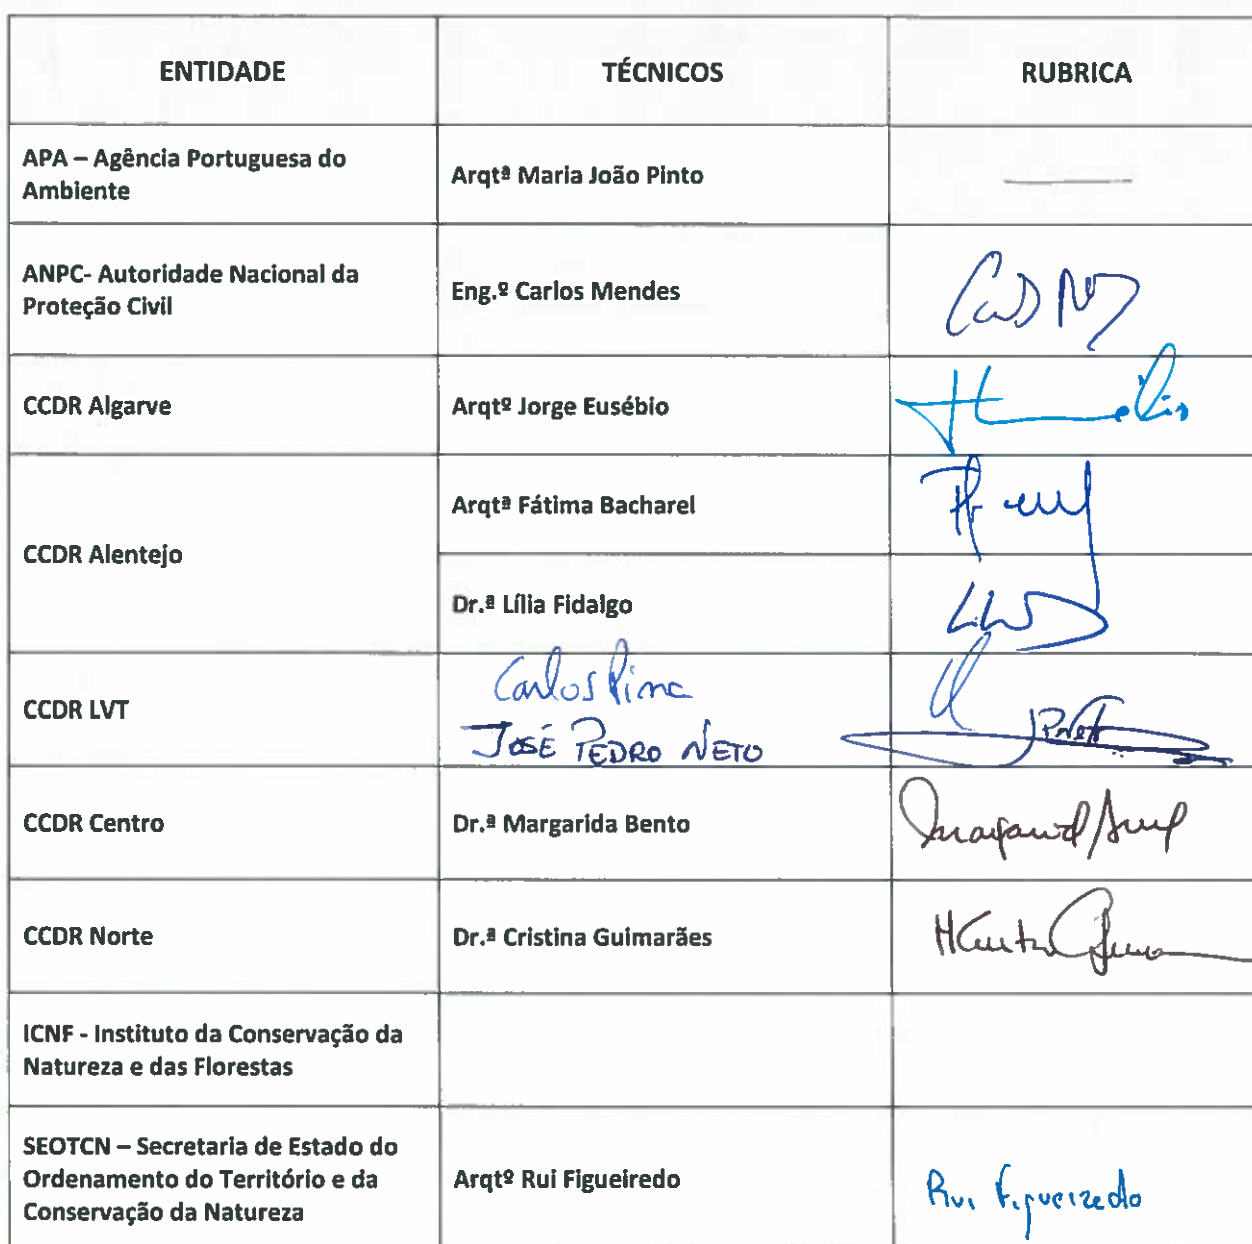 ENTIDADE TÉCNICOS RUBRICA
APA – Agência Portuguesa do
Ambiente
Arqtª Maria João Pinto
ANPC- Autoridade Nacional da
Proteção Civil
Eng.º Carlos Mendes
CCDR Algarve
Arqtº Jorge Eusébio
CCDR Alentejo
Arqtª Fátima Bacharel
Dr.ª Lília Fidalgo
CCDR LVT
Carlos Pina
JOSÉ PEDRO NETO
CCDR Centro
Dr.ª Margarida Bento
CCDR Norte
Dr.ª Cristina Guimarães
ICNF - Instituto da Conservação da
Natureza e das Florestas
SEOTCN – Secretaria de Estado do
Ordenamento do Território e da
Conservação da Natureza
Arqtº Rui Figueiredo
Rui Figueiredo